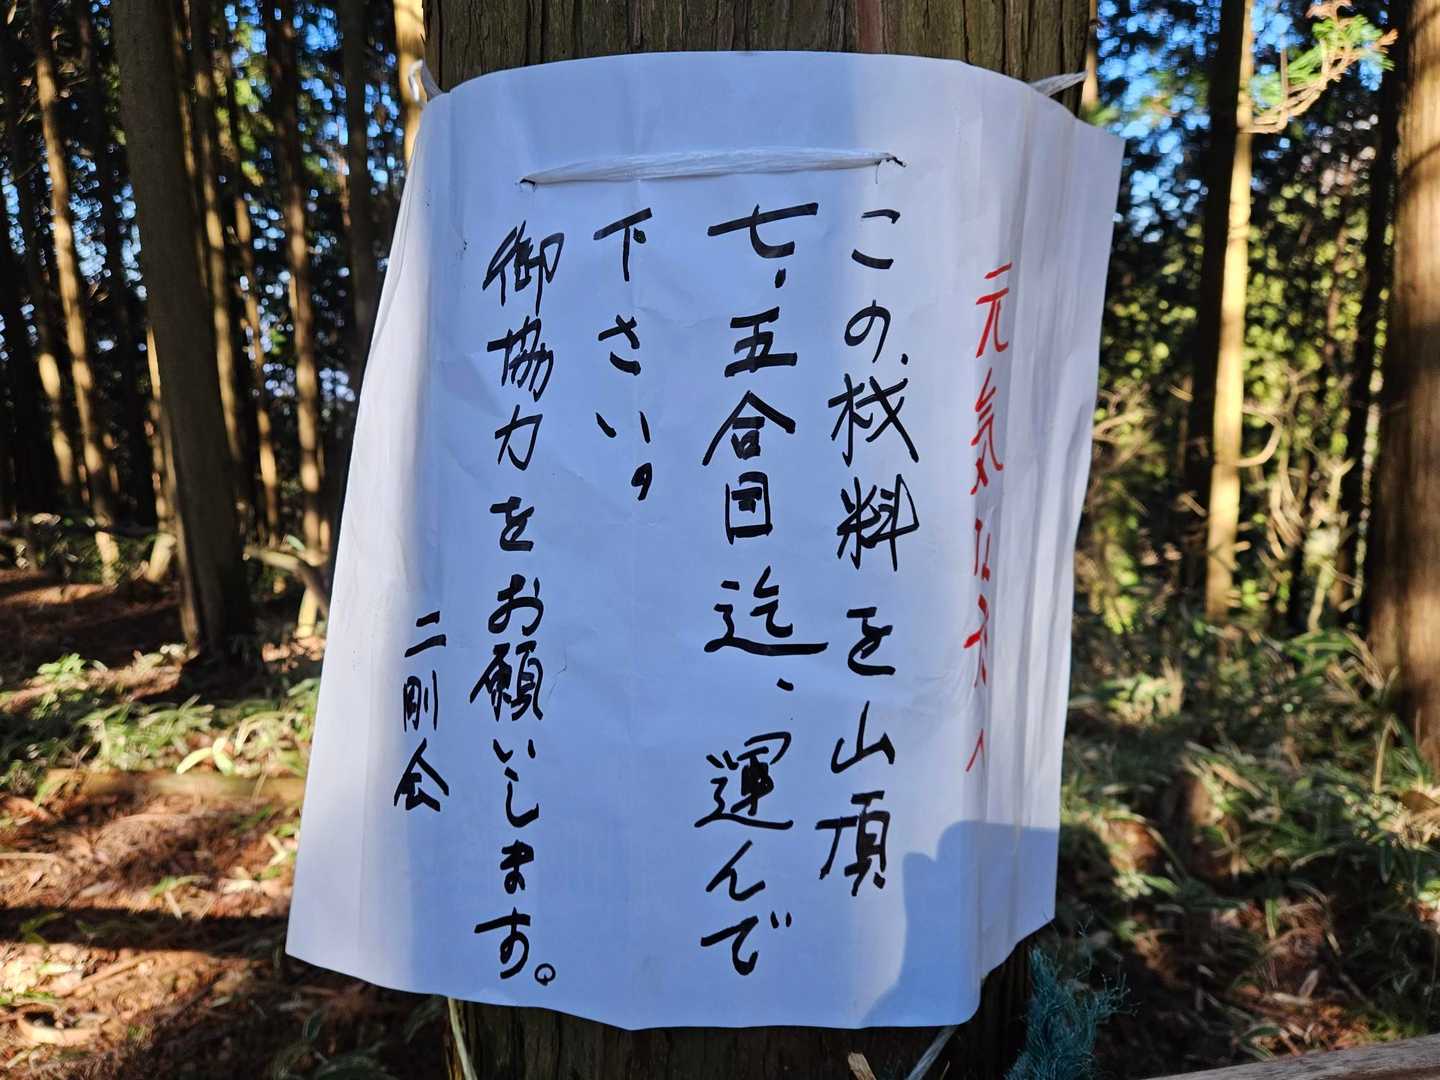 元気な方へ
この、材料を山頂
七、五合目迄、運んで
下さい。
御協力をお願いします。
二剛会